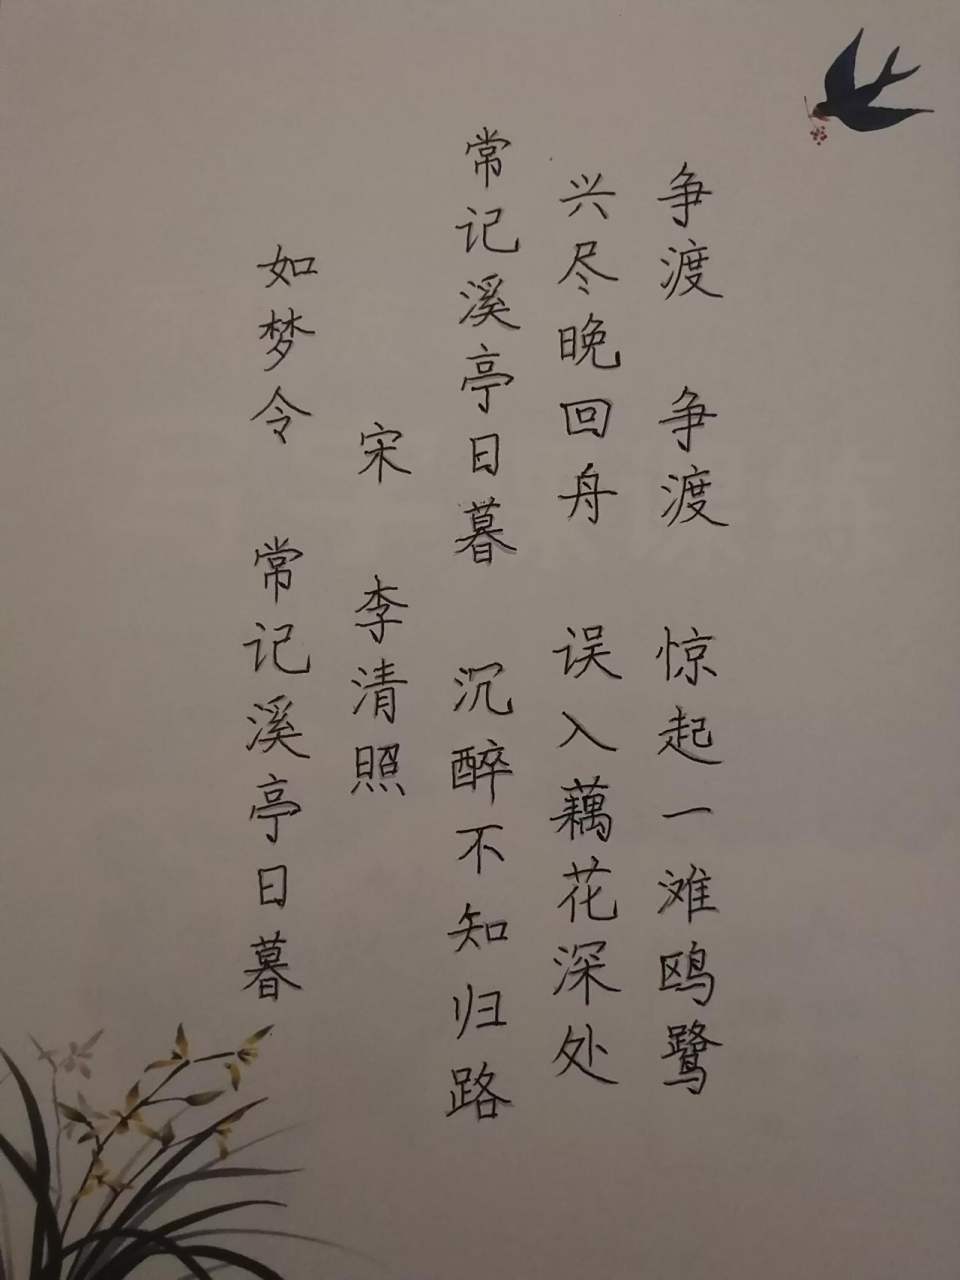 如梦令 常记溪亭日暮
宋 李清照
常记溪亭日暮 沉醉不知归路
兴尽晚回舟 误入藕花深处
争渡 争渡 惊起一滩鸥鹭